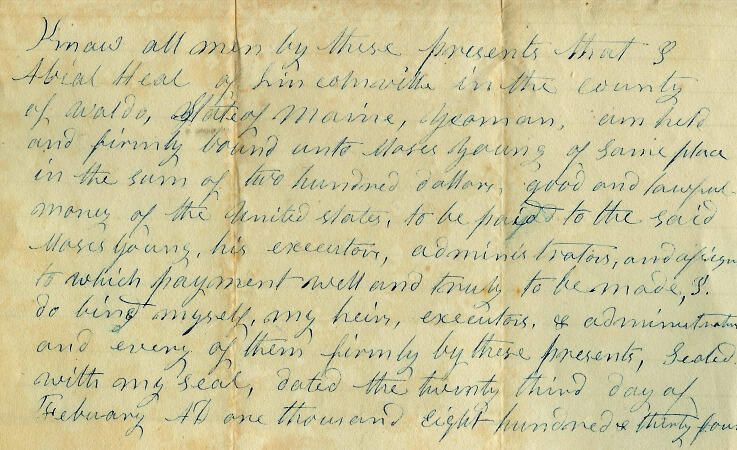 Know all men by these presents that I
Abial Heal of Lincolnville in the county
of Waldo, State of Maine, Yeoman, am held
and firmly bound unto Moses Young of same place
in the sum of two hundred dollars, good and lawful
money of the United States, to be paid to the said
Moses Young, his executors, administrators, and assigns
to which payment well and truly to be made, I.
do bind myself, my heirs, executors, & administrators
and every of them firmly by these presents, Sealed
with my seal, dated the twenty third day of
Febuary AD one thousand eight hundred & thirty four